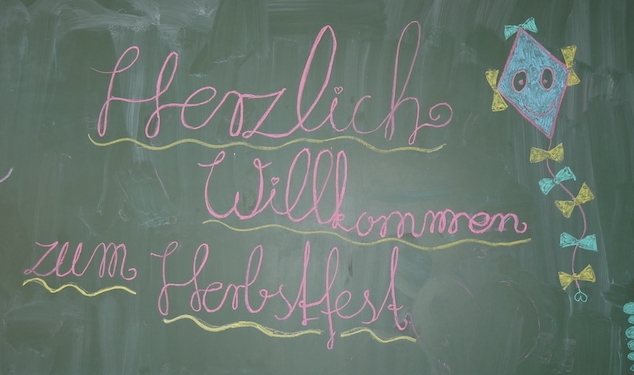 Herzlich
Willkommen
zum Herbstfest